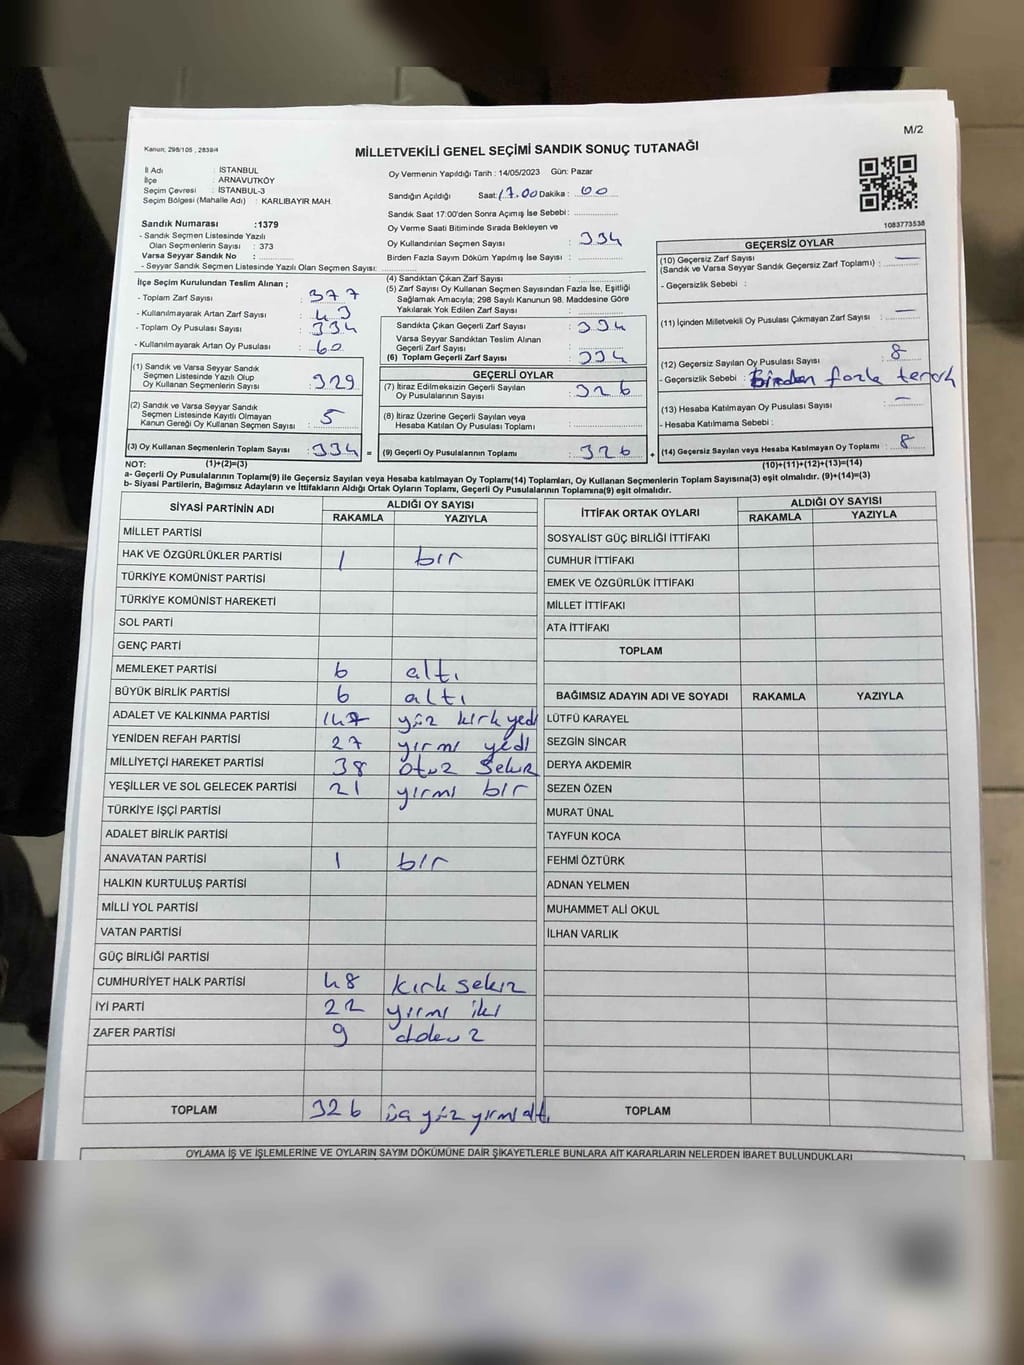 M/2
Kanun; 298/105 , 2839/4
MİLLETVEKİLİ GENEL SEÇİMİ SANDIK SONUÇ TUTANAĞI
İl Adı : İSTANBUL
İlçe : ARNAVUTKÖY
Seçim Çevresi : İSTANBUL-3
Seçim Bölgesi (Mahalle Adı) : KARLIBAYIR MAH.
Sandık Numarası :1379
- Sandık Seçmen Listesinde Yazılı
Olan Seçmenlerin Sayısı : 373
Varsa Seyyar Sandık No :
- Seyyar Sandık Seçmen Listesinde Yazılı Olan Seçmen Sayısı:
Oy Vermenin Yapıldığı Tarih : 14/05/2023 Gün: Pazar
Sandığın Açıldığı Saat: 17.00 Dakika : 00
Sandık Saat 17:00'den Sonra Açımış İse Sebebi :
Oy Verme Saati Bitiminde Sırada Bekleyen ve
Oy Kullandırılan Seçmen Sayısı : 334
Birden Fazla Sayım Döküm Yapılmış İse Sayısı :
1083773538
İlçe Seçim Kurulundan Teslim Alınan ;
- Toplam Zarf Sayısı : 377
- Kullanılmayarak Artan Zarf Sayısı : 43
- Toplam Oy Pusulası Sayısı : 334
- Kullanılmayarak Artan Oy Pusulası : 60
(1) Sandık ve Varsa Seyyar Sandık
Seçmen Listesinde Yazılı Olup
Oy Kullanan Seçmenlerin Sayısı : 329
(2) Sandık ve Varsa Seyyar Sandık
Seçmen Listesinde Kayıtlı Olmayan
Kanun Gereği Oy Kullanan Seçmen Sayısı : 5
(3) Oy Kullanan Seçmenlerin Toplam Sayısı : 334 =
(1)+(2)=(3)
(4) Sandıktan Çıkan Zarf Sayısı :
(5) Zarf Sayısı Oy Kullanan Seçmen Sayısından Fazla İse, Eşitliği
Sağlamak Amacıyla; 298 Sayılı Kanunun 98. Maddesine Göre
Yakılarak Yok Edilen Zarf Sayısı :
Sandıkta Çıkan Geçerli Zarf Sayısı : 334
Varsa Seyyar Sandıktan Teslim Alınan
Geçerli Zarf Sayısı :
(6) Toplam Geçerli Zarf Sayısı : 334
GEÇERLİ OYLAR
(7) İtiraz Edilmeksizin Geçerli Sayılan
Oy Pusulalarının Sayısı : 326
(8) İtiraz Üzerine Geçerli Sayılan veya
Hesaba Katılan Oy Pusulası Toplamı :
(9) Geçerli Oy Pusulalarının Toplamı : 326 +
GEÇERSİZ OYLAR
(10) Geçersiz Zarf Sayısı
(Sandık ve Varsa Seyyar Sandık Geçersiz Zarf Toplamı) : —
- Geçersizlik Sebebi :
(11) İçinden Milletvekili Oy Pusulası Çıkmayan Zarf Sayısı : —
(12) Geçersiz Sayılan Oy Pusulası Sayısı : 8
- Geçersizlik Sebebi : Birden fazla tercih
(13) Hesaba Katılmayan Oy Pusulası Sayısı : —
- Hesaba Katılmama Sebebi :
(14) Geçersiz Sayılan veya Hesaba Katılmayan Oy Toplamı : 8
(10)+(11)+(12)+(13)=(14)
NOT:
a- Geçerli Oy Pusulalarının Toplamı(9) ile Geçersiz Sayılan veya Hesaba katılmayan Oy Toplam(14) Toplamları, Oy Kullanan Seçmenlerin Toplam Sayısına(3) eşit olmalıdır. (9)+(14)=(3)
b- Siyasi Partilerin, Bağımsız Adayların ve İttifakların Aldığı Ortak Oyların Toplamı, Geçerli Oy Pusulalarının Toplamına(9) eşit olmalıdır.
SİYASİ PARTİNİN ADI ALDIĞI OY SAYISI
RAKAMLA YAZIYLA
MİLLET PARTİSİ
HAK VE ÖZGÜRLÜKLER PARTİSİ 1 bir
TÜRKİYE KOMÜNİST PARTİSİ
TÜRKİYE KOMÜNİST HAREKETİ
SOL PARTİ
GENÇ PARTİ
MEMLEKET PARTİSİ 6 altı
BÜYÜK BİRLİK PARTİSİ 6 altı
ADALET VE KALKINMA PARTİSİ 147 yüz kırk yedi
YENİDEN REFAH PARTİSİ 27 yirmi yedi
MİLLİYETÇİ HAREKET PARTİSİ 38 otuz sekiz
YEŞİLLER VE SOL GELECEK PARTİSİ 21 yirmi bir
TÜRKİYE İŞÇİ PARTİSİ
ADALET BİRLİK PARTİSİ
ANAVATAN PARTİSİ 1 bir
HALKIN KURTULUŞ PARTİSİ
MİLLİ YOL PARTİSİ
VATAN PARTİSİ
GÜÇ BİRLİĞİ PARTİSİ
CUMHURİYET HALK PARTİSİ 48 kırk sekiz
İYİ PARTİ 22 yirmi iki
ZAFER PARTİSİ 9 dokuz
TOPLAM 326 üç yüz yirmi altı
İTTİFAK ORTAK OYLARI ALDIĞI OY SAYISI
RAKAMLA YAZIYLA
SOSYALİST GÜÇ BİRLİĞİ İTTİFAKI
CUMHUR İTTİFAKI
EMEK VE ÖZGÜRLÜK İTTİFAKI
MİLLET İTTİFAKI
ATA İTTİFAKI
TOPLAM
BAĞIMSIZ ADAYIN ADI VE SOYADI RAKAMLA YAZIYLA
LÜTFÜ KARAYEL
SEZGİN SİNCAR
DERYA AKDEMİR
SEZEN ÖZEN
MURAT ÜNAL
TAYFUN KOCA
FEHMİ ÖZTÜRK
ADNAN YELMEN
MUHAMMET ALİ OKUL
İLHAN VARLIK
TOPLAM
OYLAMA İŞ VE İŞLEMLERİNE VE OYLARIN SAYIM DÖKÜMÜNE DAİR ŞİKAYETLERLE BUNLARA AİT KARARLARIN NELERDEN İBARET BULUNDUKLARI